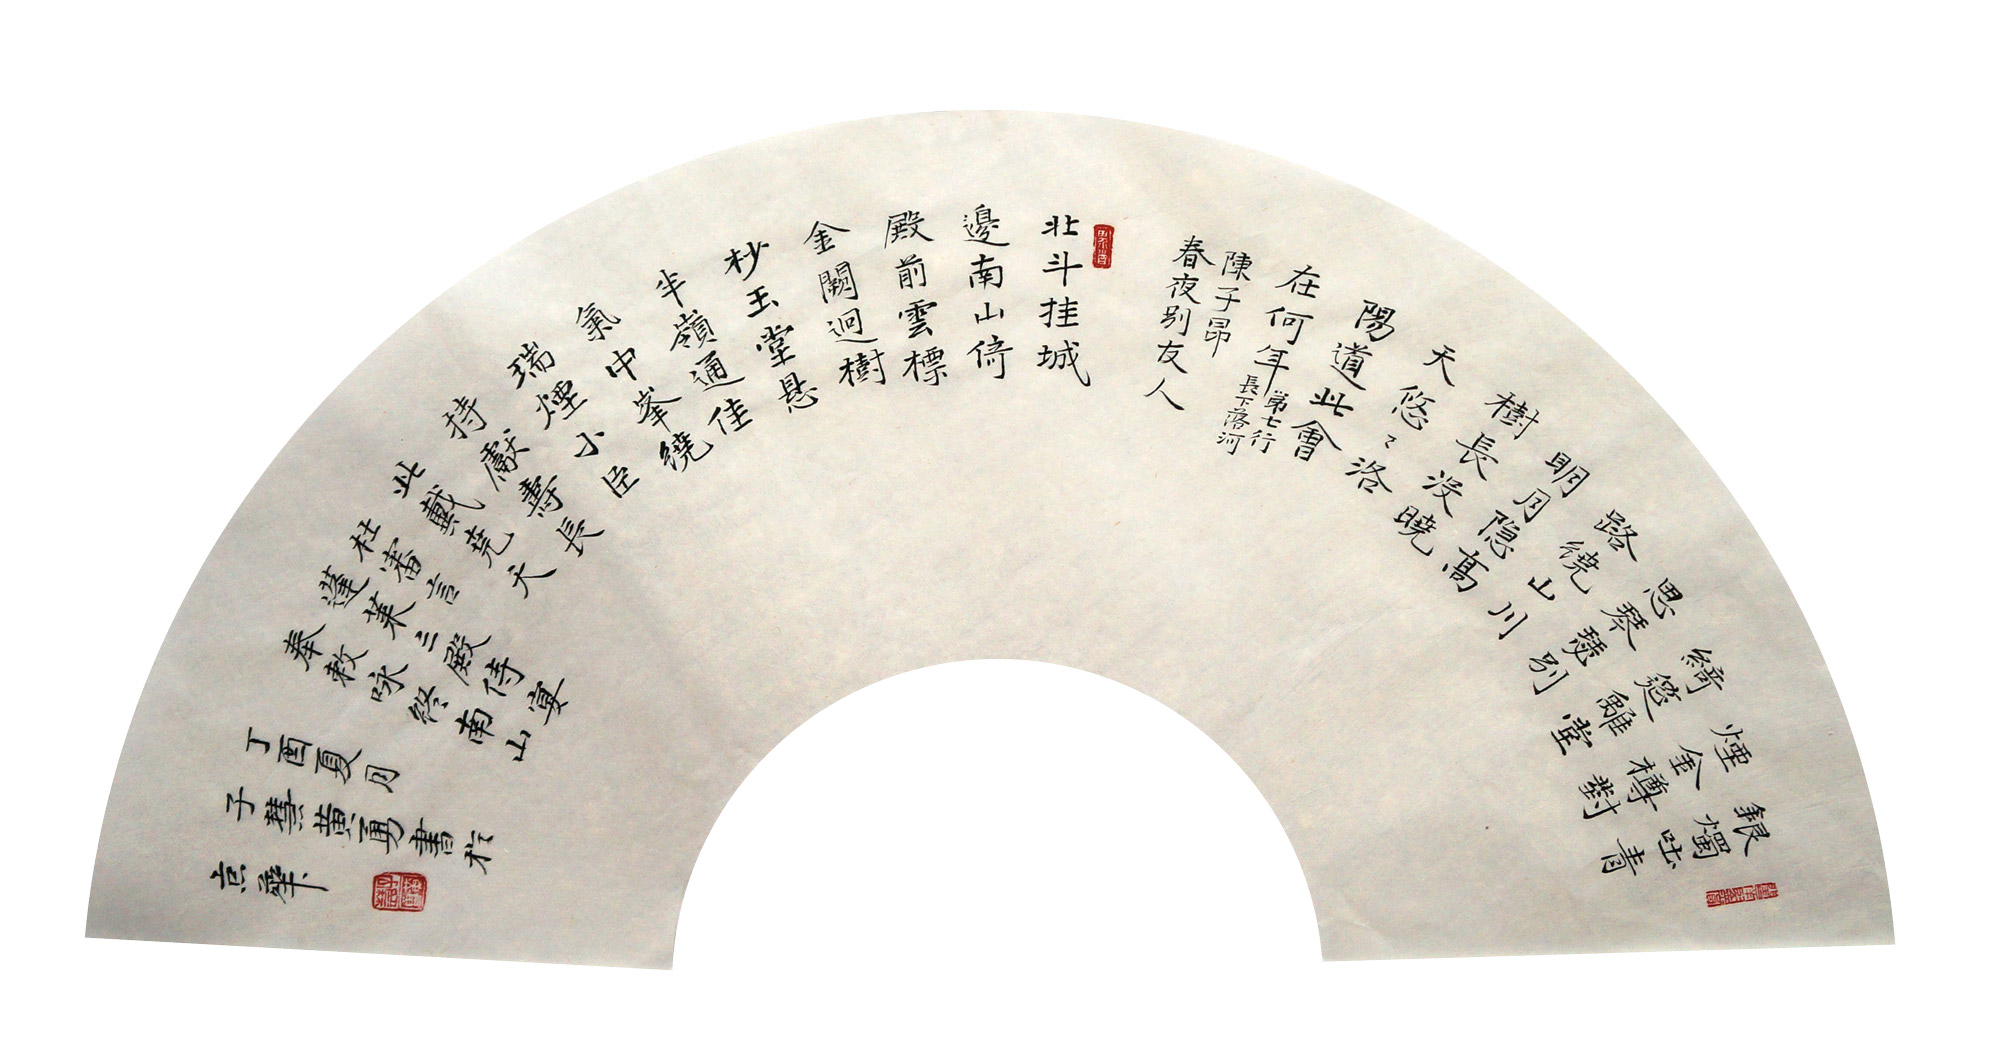 銀燭吐青
煙金樽對
綺筵離堂
思琴瑟別
路繞山川
明月隐高
樹長沒曉
天悠〻洛
陽道此會
在何年
第七行
長下落河
陳子昂
春夜别友人
北斗挂城
邊南山倚
殿前雲標
金闕迥樹
杪玉堂悬
半嶺通佳
氣中峯繞
瑞煙小臣
持獻壽長
此戴堯天
杜審言
蓬莱三殿侍宴
奉敕咏终南山
丁酉夏月
子慧黄勇書於
京華